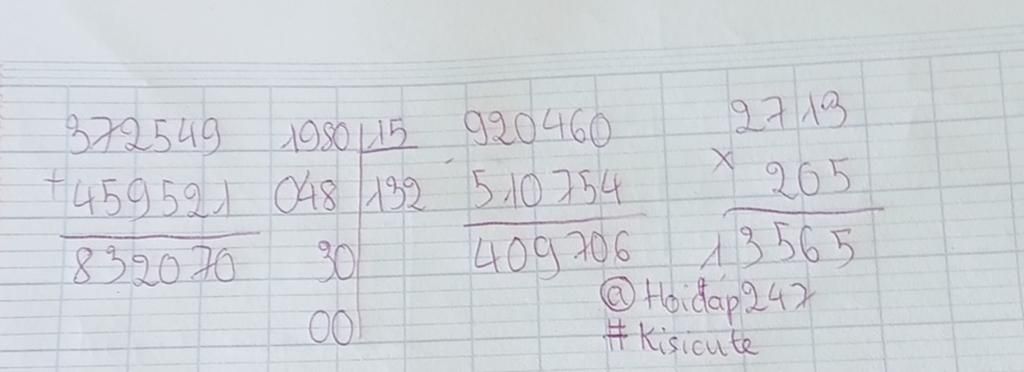 372549 1980 15 920460 2713
+ 459521 048 132 - 510754 x 265
832070 30 409706 13565
00
@Hoidap247
# Kisicute